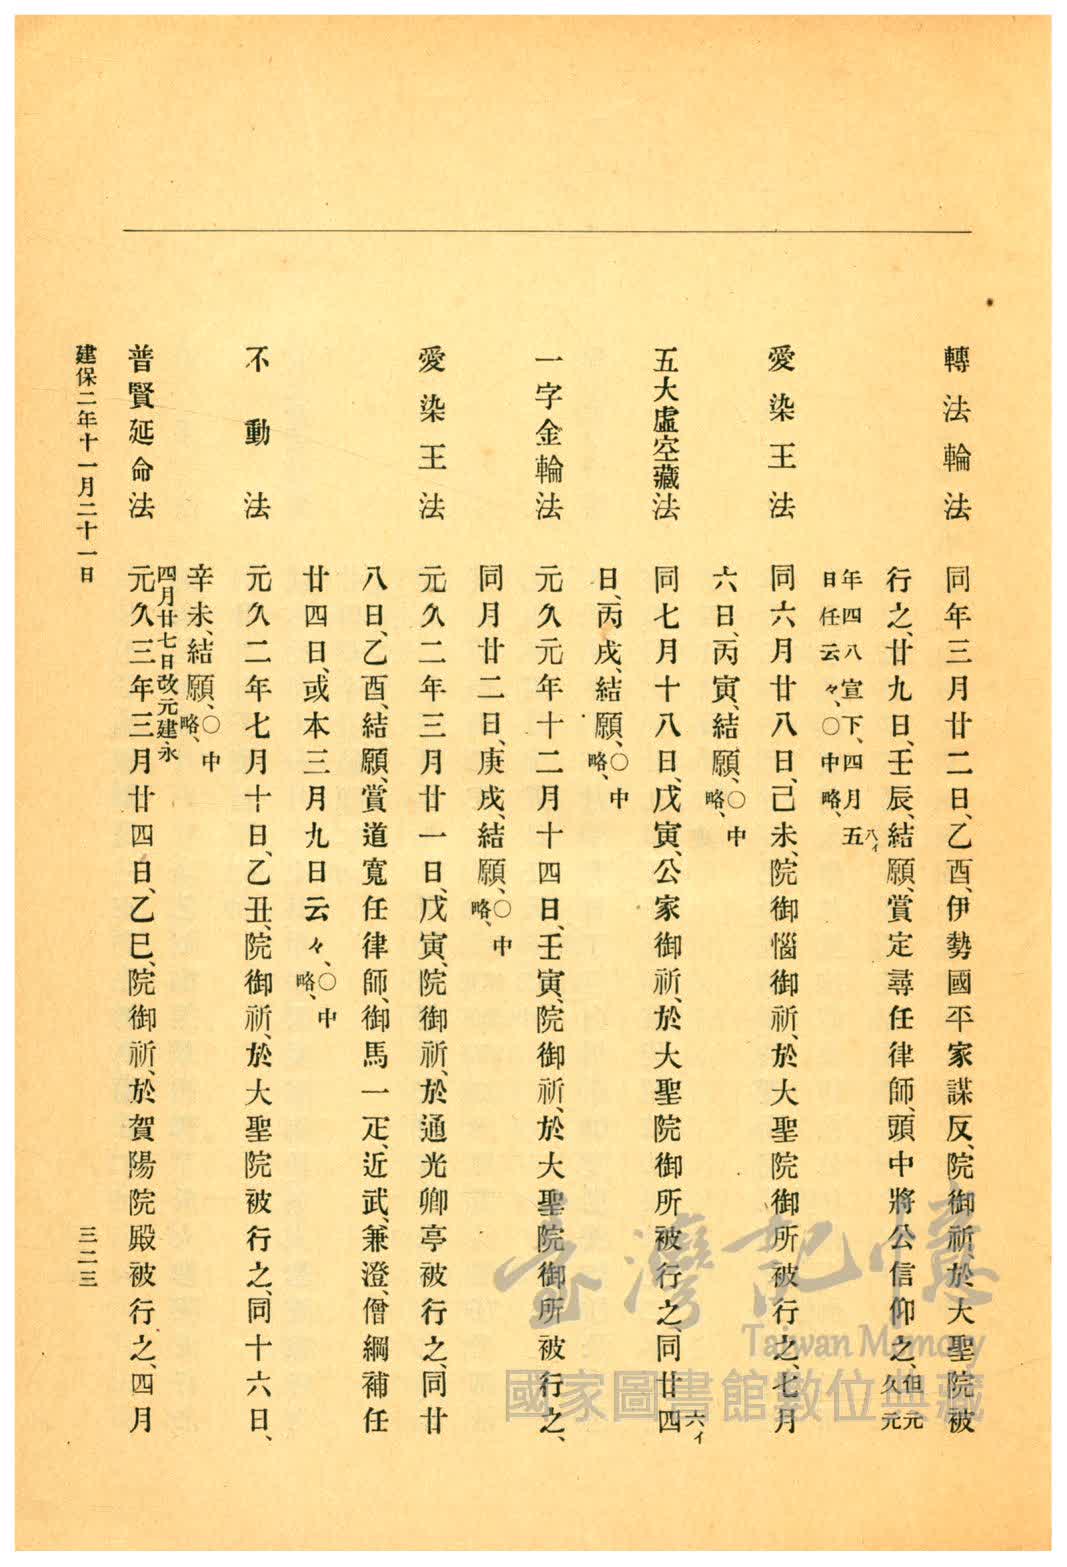 轉法輪法　同年三月廿二日、乙酉、伊勢國平家謀反、院御祈、於大聖院被
行之、廿九日、壬辰、結願、賞定尋任律師、頭中將公信仰之、但元久元
年四八宣下、四月五八イ日任云々、〇中略、
愛染王法　同六月廿八日、己未、院御惱御祈、於大聖院御所被行之、七月
六日、丙寅、結願、〇中略、
五大虛空藏法　同七月十八日、戊寅、公家御祈、於大聖院御所被行之、同廿四六イ
日、丙戌、結願、〇中略、
一字金輪法　元久元年十二月十四日、壬寅、院御祈、於大聖院御所被行之、
同月廿二日、庚戌、結願、〇中略、
愛染王法　元久二年三月廿一日、戊寅、院御祈、於通光卿亭被行之、同廿
八日、乙酉、結願、賞道寬任律師、御馬一疋、近武、兼澄、僧綱補任
廿四日、或本三月九日云々、〇中略、
不動法　元久二年七月十日、乙丑、院御祈、於大聖院被行之、同十六日、
辛未、結願、〇中略、
四月廿七日改元建永
普賢延命法　元久三年三月廿四日、乙巳、院御祈、於賀陽院殿被行之、四月
建保二年十一月二十一日
三二三
臺灣記憶
Taiwan Memory
國家圖書館數位典藏